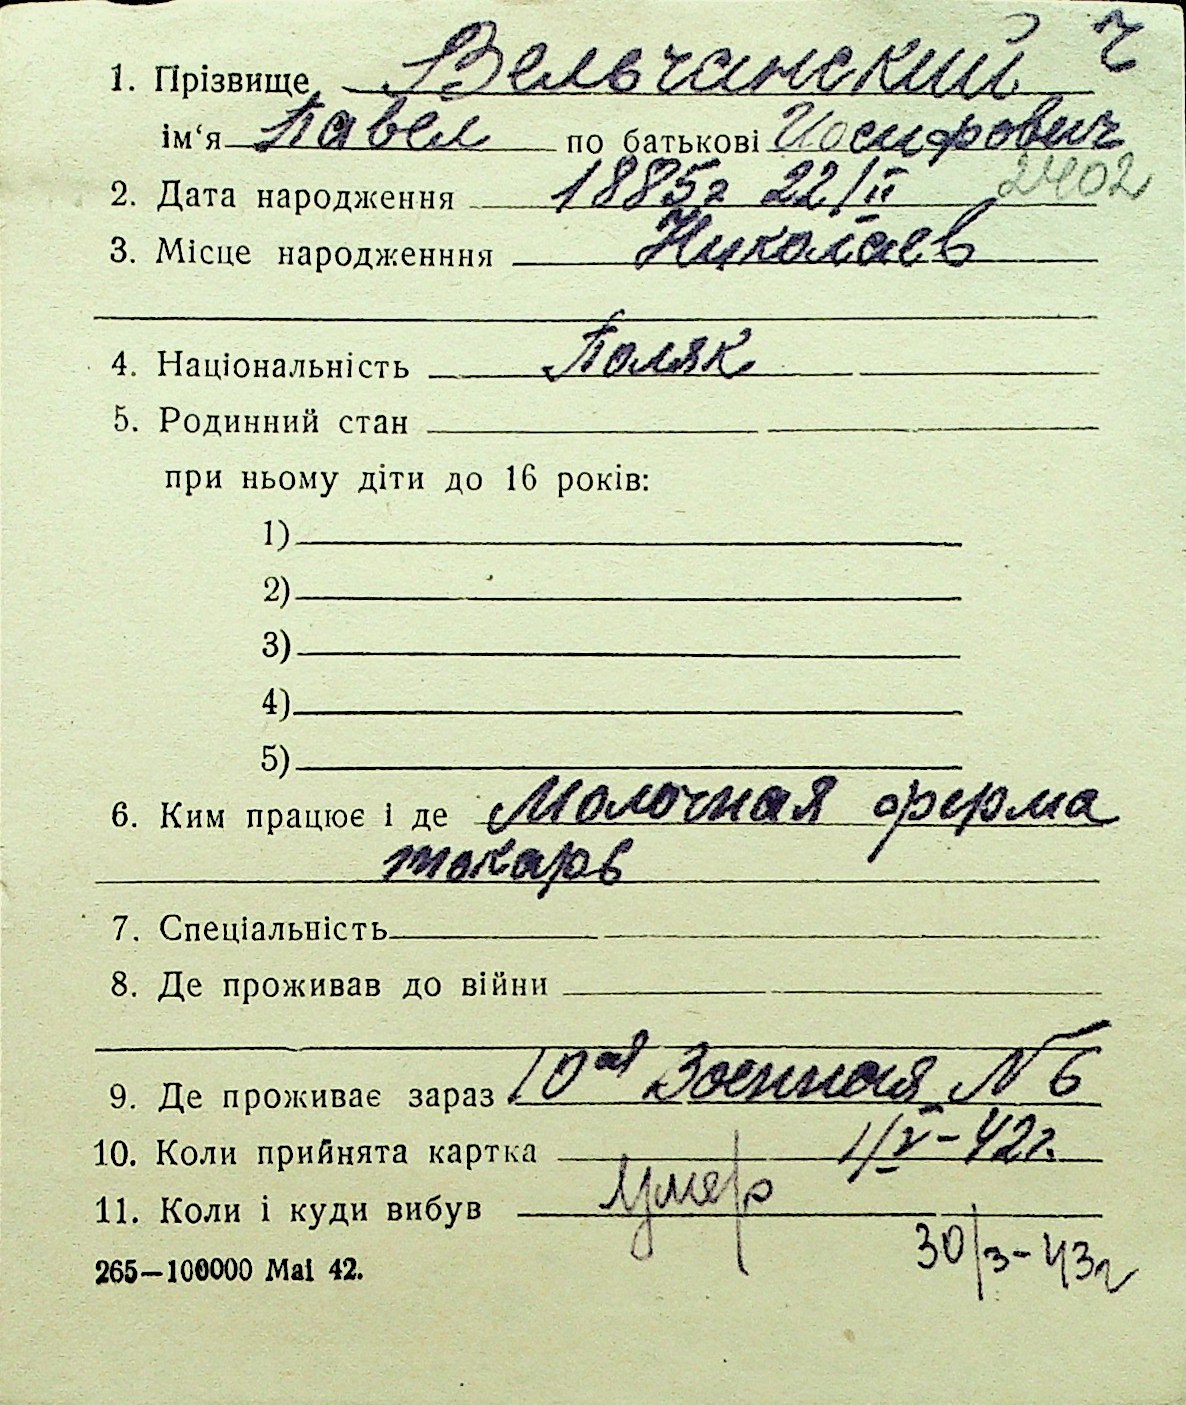 1. Прізвище Вельчанский ч
ім‘я Павел по батькові Иосифович
2402
2. Дата народження 1885г 22/II
3. Місце народженння Николаев
4. Національність Поляк
5. Родинний стан
при ньому діти до 16 років:
1)
2)
3)
4)
5)
6. Ким працює і де Молочная ферма
токарь
7. Спеціальність
8. Де проживав до війни
9. Де проживає зараз 10ая Военная N 6
10. Коли прийнята картка 1/V-42г.
11. Коли і куди вибув умер
30/3-43г
265—100000 Маі 42.